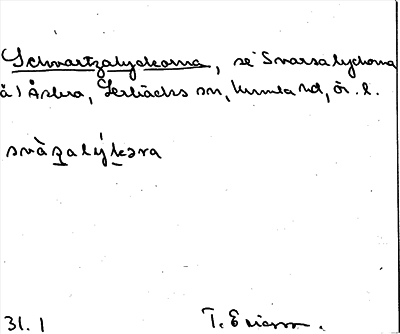 Schwartzalyckorna, se Svarsalyckorna
å) Åsbro, Lerbäcks sn, Kumla hd, ör. l.
svàzalýkəra
31. 1 T. Ericsson.